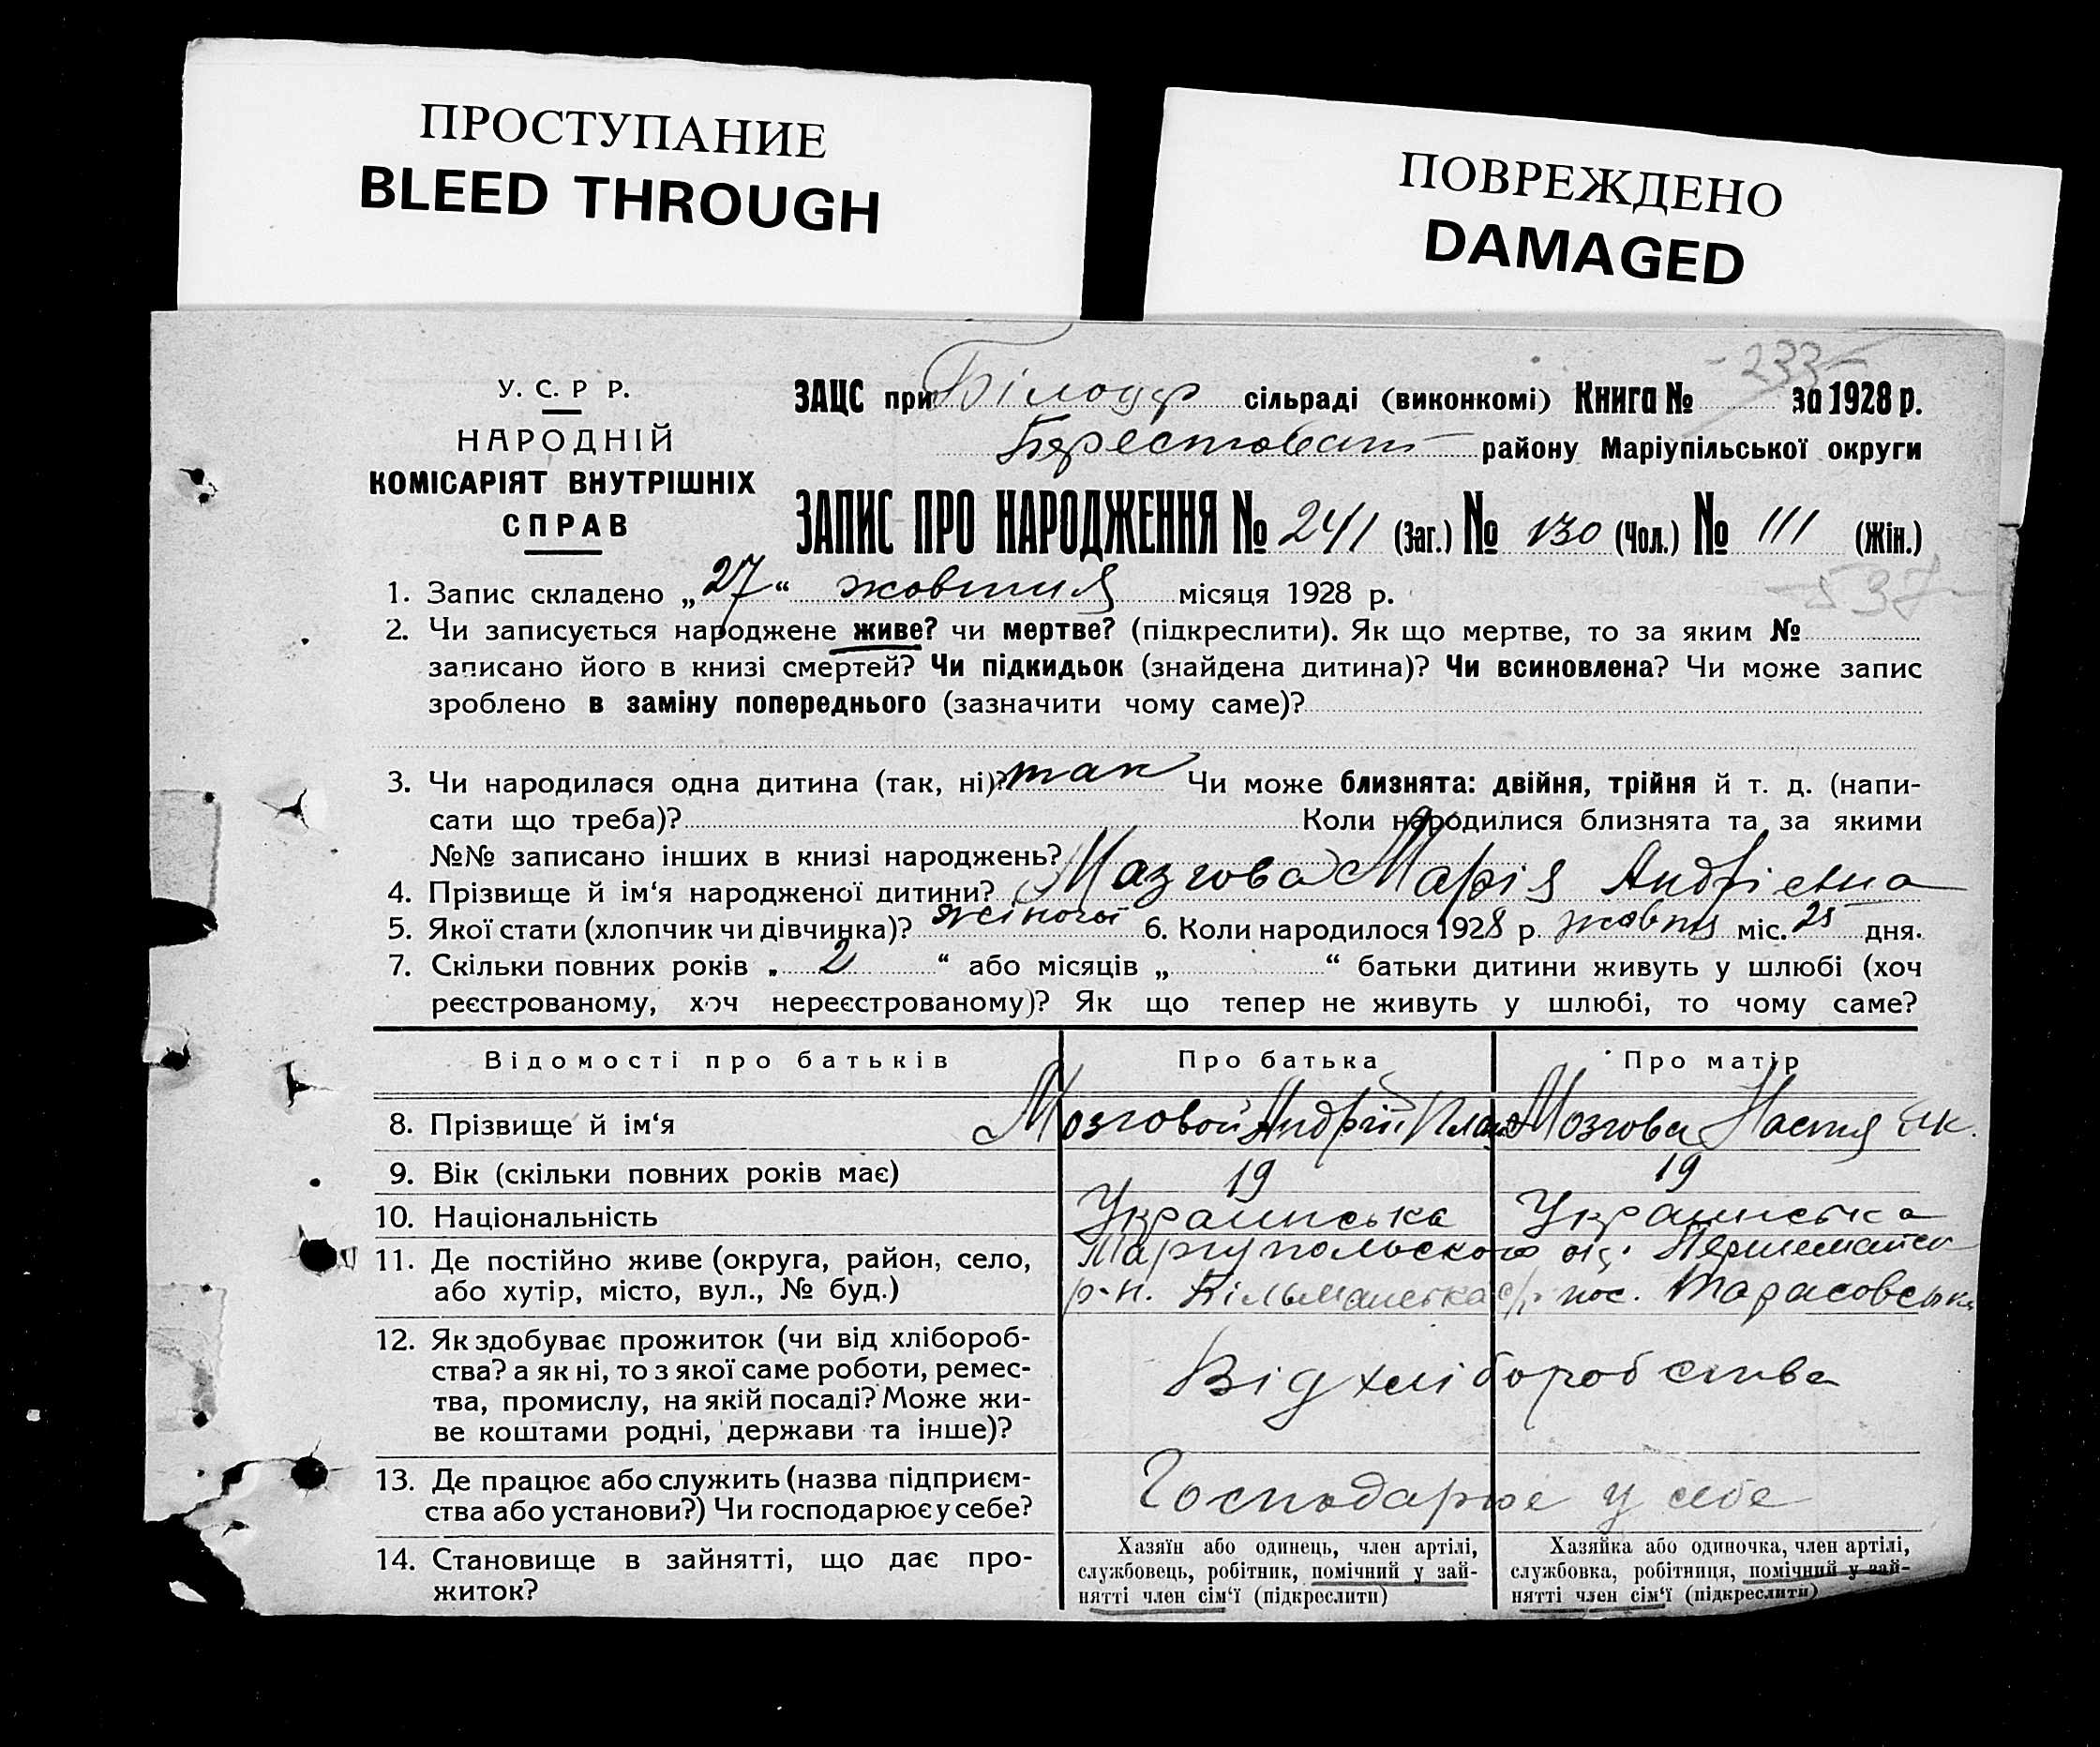 ПРОСТУПАНИЕ
BLEED THROUGH
ПОВРЕЖДЕНО
DAMAGED
-233-
У. С. Р Р.
НАРОДНІЙ
КОМІСАРІЯТ ВНУТРІШНІХ
СПРАВ
ЗАЦС при сільраді (виконкомі) Книга № за 1928 р.
Берестоват району Маріупільської округи
ЗАПИС ПРО НАРОДЖЕННЯ № 241 (Заг.) № 130 (Чол.) № 111 (Жін.)
-537-
1. Запис складено „27“ жовтня місяця 1928 р.
2. Чи записується народжене живе? чи мертве? (підкреслити). Як що мертве, то за яким №
записано його в книзі смертей? Чи підкидьок (знайдена дитина)? Чи всиновлена? Чи може запис
зроблено в заміну попереднього (зазначити чому саме)?
3. Чи народилася одна дитина (так, ні)? так Чи може близнята: двійня, трійня й т. д. (напи-
сати що треба)? Коли народилися близнята та за якими
№№ записано інших в книзі народжень?
4. Прізвище й ім‘я народженої дитини? Мазгова Марія Андріевна
5. Якої стати (хлопчик чи дівчинка)? жіночої 6. Коли народилося 1928 р. жовтня міс. 25 дня.
7. Скільки повних років „ 2 “ або місяців „ “ батьки дитини живуть у шлюбі (хоч
реєстрованому, хоч нереєстрованому)? Як що тепер не живуть у шлюбі, то чому саме?
Відомості про батьків Про батька Про матір
8. Прізвище й ім‘я Мозговой Андрій Мозгова Настя Як.
9. Вік (скільки повних років має) 19 19
10. Національність Украинська Украинська
11. Де постійно живе (округа, район, село, Маріупольского ок.
або хутір, місто, вул., № буд.) р-н. Більманська с/р пос. Тарасовська
12. Як здобуває прожиток (чи від хлібороб-
ства? а як ні, то з якої саме роботи, ремес-
тва, промислу, на якій посаді? Може жи-
ве коштами родні, держави та інше)?
Від хліборобства
13. Де працює або служить (назва підприєм-
ства або установи?) Чи господарює у себе?
Господарює у себе
14. Становище в зайнятті, що дає про-
житок?
Хазяїн або одинець, член артілі,
службовець, робітник, помічний у зай-
нятті член сім‘ї (підкреслити)
Хазяйка або одиночка, член артілі,
службовка, робітниця, помічний у зай-
нятті член сім‘ї (підкреслити)